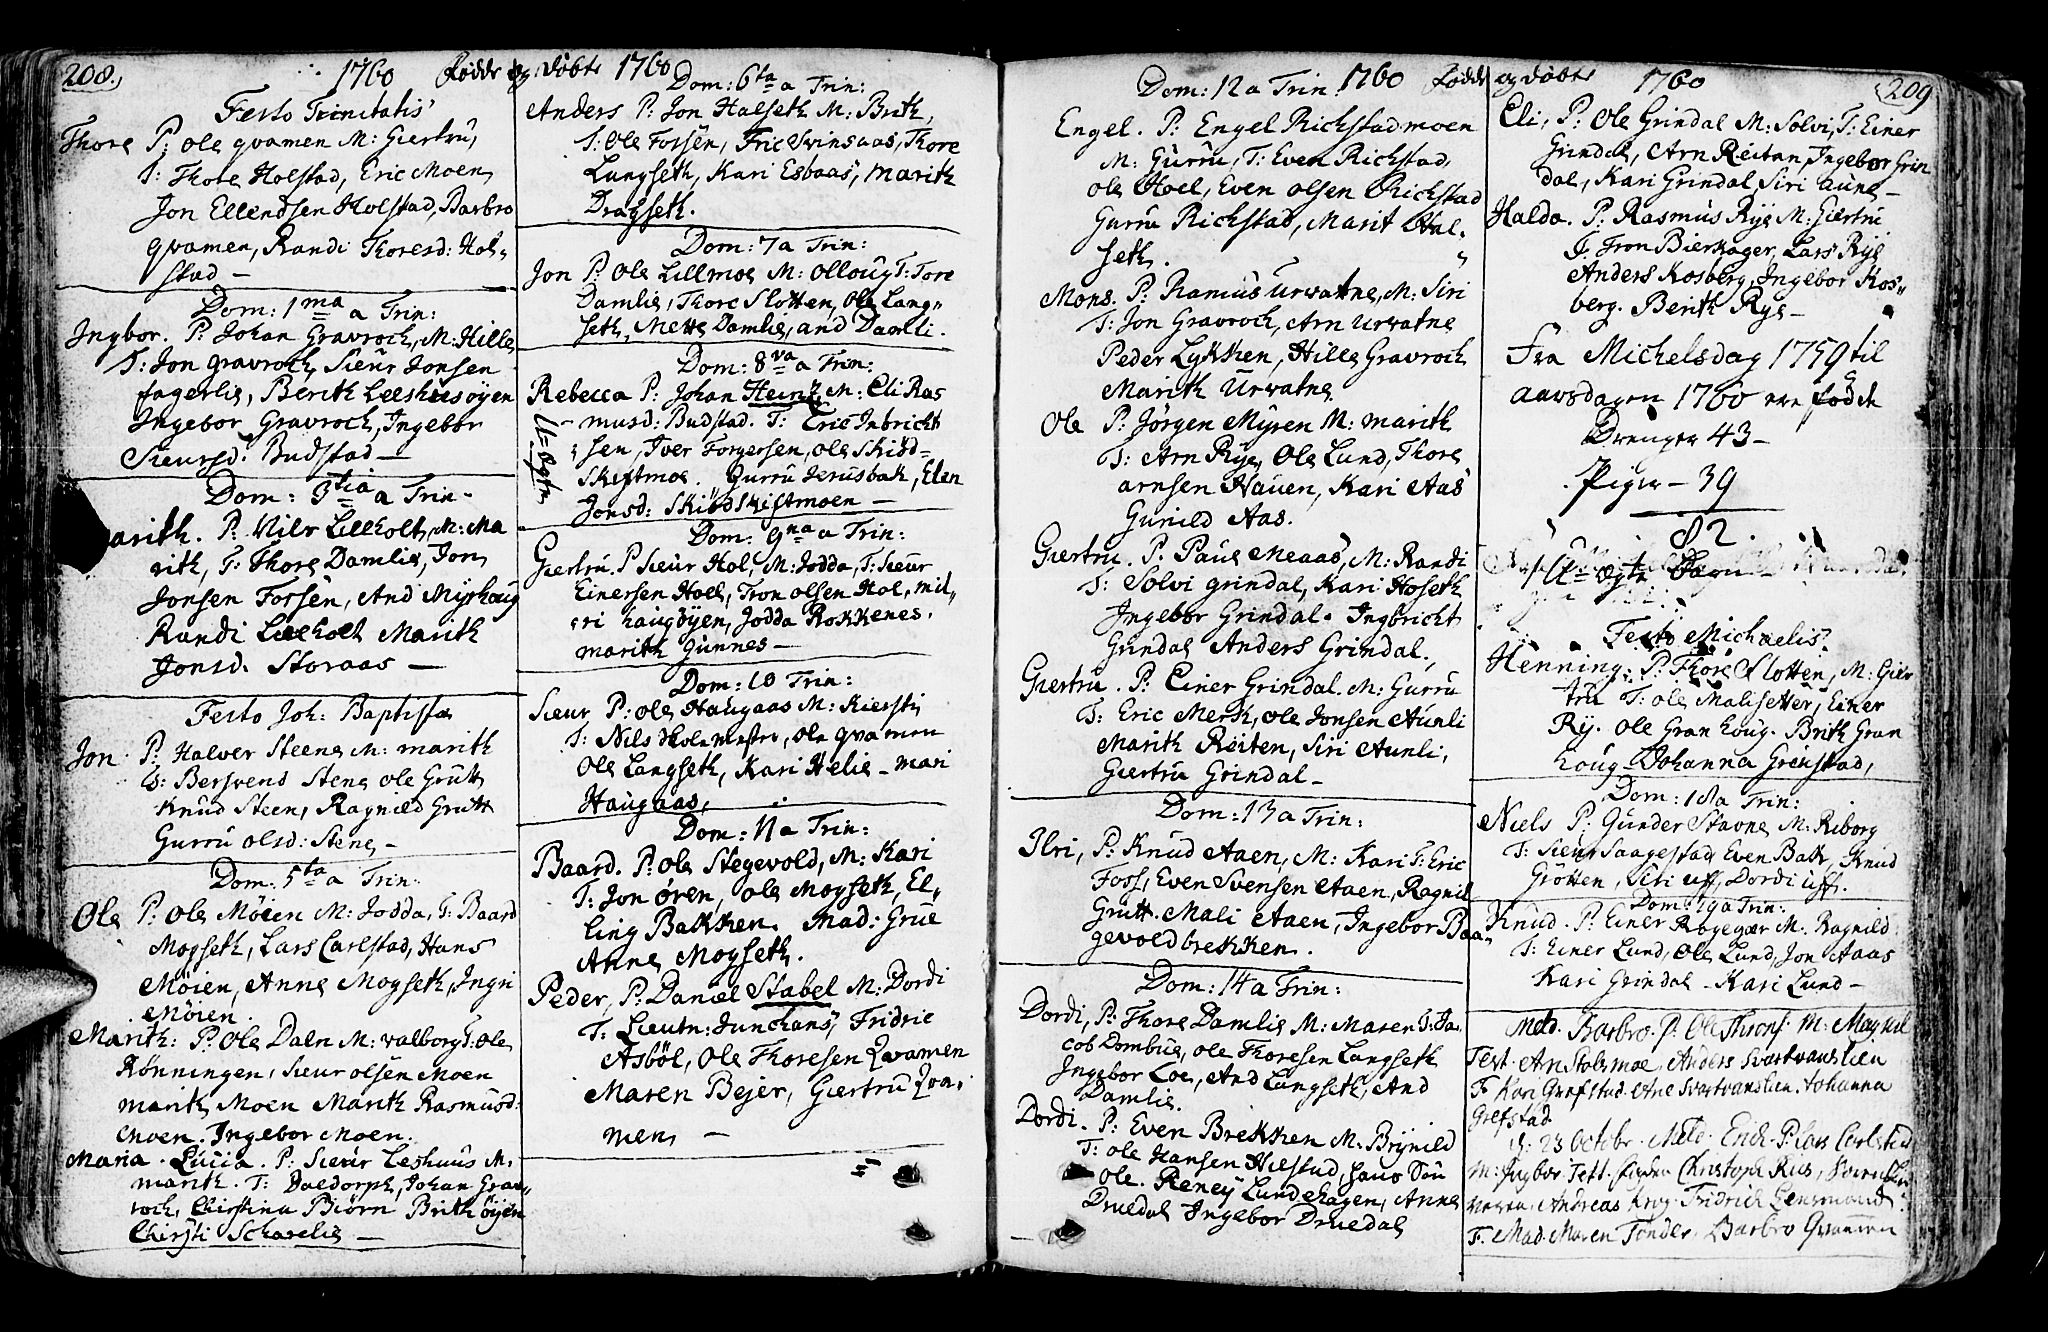 208.
1760 Fødde og døbte 1760
Festo Trinitatis
Thore P: Ole qvamen M: Giertru,
T: Thore Holstad, Eric Moen,
Jon Ellendsen Holstad, Barbro
qvamen, Randi Thoresd: Hol-
stad –
Dom: 1ma a Trin:
Ingbor. P: Johan Gravroch, M: Hille
T: Jon gravroch, Sieur Jonsen
fagerlie, Berith Leeshuusøyen
Ingebor Gravroch, Ingebor
Sieursd. Budstad –
Dom: 3tia a Trin-
arith. P: Nils Leeholt, M: Ma
rith, T: Thore Damlie, Jon
Jonsen Forsen, And Myrhoug
Randi Leeholt Marith
Jonsd. Storaas –
Festo Joh: Baptistæ
Jon. P: Halver Steene M: marith
T: Bersvend Stene ole Grutt
Knud Steen, Ragnild Grutt
Gurru olsd: Stene –
Dom: 5ta a Trin:
Ole P: Ole Möien M: Jodda, T: Baard
Moyseth, Lars Carlstad, Hans
Möien, Anne Moyseth, Ingri
Möien.
Marith: P: Ole Daln M: valborg T: Ole
Rönningen, Sieur olsen Moen
marith Moen Marith Rasmusd:
Moen. Ingebor Moen.
Maria Lucia. P: Sieur Leshuus M.
marith. T: Daldorph, Johan Grav-
roch, Christina Biörn Brith öyen
Chirsti Schavelie –
Dom: 6ta a Trin:
Anders P: Jon Halseth M: Brith,
T: Ole Forsen, Eric Svinsaas, Thore
Langseth, Kari Esbaas, Marith
Dragseth.
Dom: 7a Trin:
Jon P: Ole Lillmoe M: Olloug T: Tore
Damlie, Thore Slotten, Ole Lang-
seth, Mette Damlie, and Damli.
Dom: 8va a Trin:
Rebecca P: Johan Heintz M: Eli Ras
musd: Budstad. T: Eric Inbricht
U-ægte
sen, Iver Forgersen, ole Skiöd-
skiftmoe. Gurru Jerusbak, Elen
Jonsd: Skiödskiftmoen –
Dom: 9na a Trin:
Giertru. P Sieur Hol, M: Jodda, T: Sieur
Einersen Hoel, Tron olsen Hol, mil-
ri haugöyen, Jodda Rokkenes,
marith Gunnes –
Dom: 10 Trin:
Sieur P: Ole Haugaas M: Kiersti
T: Nils Holemestre, Ole qvamen
Ole Langseth, Kari Helie – mari
Haugaas,
Dom: 11 a Trin:
Baard. P: Ole Stegevold, M: Kari
T: Jon ören, Ole Moyseth, El-
ling Bakken. Mad: Grüe
Anne Moyseth.
Peder, P: Daniel Stabel M: Dordi
T: Lieutn: Junghans, Fridric
Asböl, Ole Thoresen Qvamen
Maren Bejer, Giertru Qva-
men, –
209
1760 Fødde og døbte 1760
Dom: 12 a Trin.
Engel. P: Engel Richstadmoen
M: Gurru, T: Even Richstad,
Ole Hoel, Even olsen Richstad
Gurru Richstad, Marit Hal-
seth.
Mons. P: Ramus Urvatne, M: Siri
T: Jon Gravroch, Arn Urvatne
Peder Lykken, Hille Gravroch
Marith Urvatne.
Ole P: Jörgen Myren M: marith
T: Arn Rye, Ole Lund, Thore
arnsen Hauen, Kari Aas
Gunild Aas.
Giertru. P: Paul Meaas, M: Randi
T: Solvi grindal, Kari Hoseth
Ingebor Grindal. Ingbricht
Grindal Anders Grindal.
Giertru. P: Einer Grindal. M: Gurru
T: Eric Merk, Ole Jonsen Aunli
Marith Reiten, Siri Aunli,
Giertru Grindal –
Dom: 13 a Trin:
Ilri, P: Knud Aaen, M: Kari T: Eric
Foss, Even Svensen Aaen, Ragnil
Grutt. Mali Aaen, Ingebor Baa-
gevoldbrekken.
Dom: 14 a Trin:
Dordi, P: Thore Damlie M: Maren T: Ja,
cob Dombue, Ole Thoresen Langseth
Ingebor Loe, And Langseth, And
Damlie.
Dordi. P: Even Brekken M: Brynild
T: Ole Hansen Hilstad, Hans Söu
Ole. Reney Lundehagen, Anne
Druedal Ingebor Druedal
Eli, P: Ole Grindal M: Solvi, T: Einer
Grindal, Arn Reitan, Ingebor Grin
dal, Kari Grindal Siri aune –
Haldo. P: Rasmus Rye M: Giertru
T: Tron Bierkager, Lars Rye
Anders Kosberg, Ingebor Kos-
berg. Berith Rye –
Fra Michelsdag 1759 til
aarsdagen 1760 ere fødde
Drenger 43 –
Piger – 39
82.
U-ægte Børn
Festo Michaelis.
Henning. P: Thore Slotten, M: Gier
tru T: ole Malisetter, Einer
Ry. Ole Granhoug. Brith Gran
houg Johanna Grinstad,
Dom: 18 a Trin:
Niels P: Gunder Stavne M: Riborg
T: Sieur Saagestad, Even Bakk, Knud
Grötten, Siri uff, Dordi uff.
Dom: 19 a Trin:
Knud. P: Einer Røgegær M. Ragnild
T: Einer Lund, Ole Lund, Jon Aaas
Kari Grindal – Kari Lund –
Meld. Barbro. P: Ole Thronss: M: Magnil
Test. Arn Stolsmoe, Anders Svartvanslien
T. Kari Grefstad. Ane Svartvanslien. Johanna
Grefstad
D: 23 Octobr. Meld. Erich. P: Lars Carlstad
M: Ingbor. Test. Christoph Rus,
Andreas Krog. Fridrich Lensmand
T. Mad. Maren Tönder. Barbro Qvammen